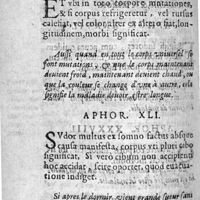 ET vbi in toto corpore mutationes,
& si corpus refrigeretur, vel rursus
calefiat, vel color alter ex altero fiat, lon-
gitudinem, morbi significat.
Aussi quand en tout le corps vniuersel se
font mutations, & que le corps maintenant
deuient froid, maintenant deuient chaud, ou
que la couleur se change d'vne à autre, cela
signifie la maladie deuoir estre longue.
APHOR. XLI.
SVdor multus ex somno factus absque
causa manifesta, corpus vti pluri cibo
significat. Si vero cibum non accipienti
hoc accidat, scire oportet, quod euacu-
tione indiget.
Si apres le dormir, vient grande sueur sans